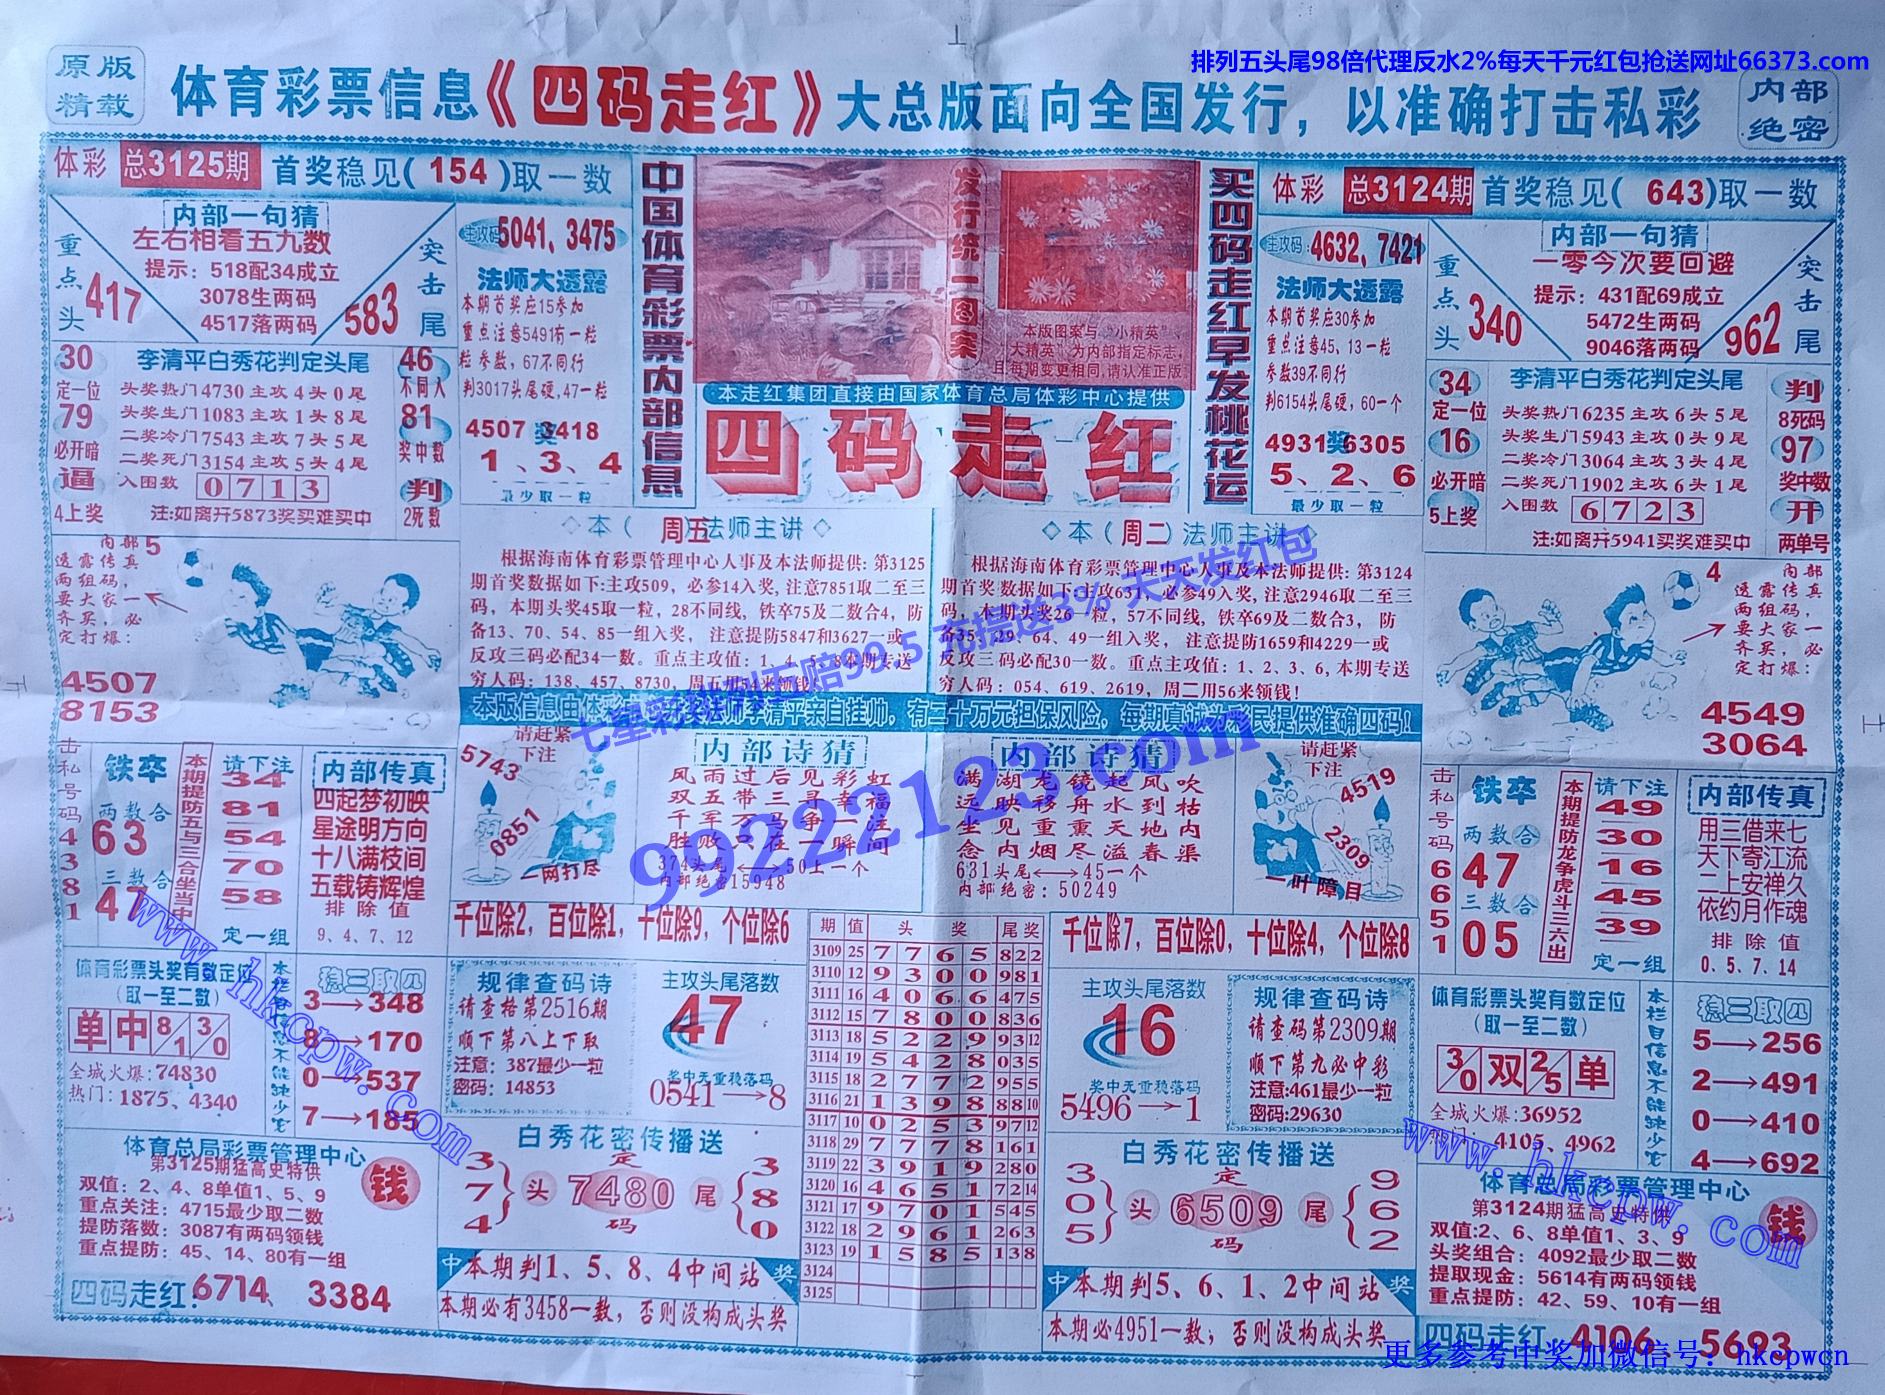 排列五头尾98倍代理反水2%每天千元红包抢送网址66373.com
原版
精载
体育彩票信息《四码走红》大总版面向全国发行，以准确打击私彩
内部
绝密
体彩 总3125期 首奖稳见(154)取一数
内部一句猜
左右相看五九数
提示：518配34成立
3078生两码
4517落两码
重点头
417
突击尾
583
主攻码 5041，3475
法师大透露
本期首奖应15参加
重点注意5491有一粒
粒参数，67不同行
判3017头尾硬，47一粒
4507 奖 3418
1、3、4
最少取一粒
30
定一位
79
必开暗
逼
4上奖
李清平白秀花判定头尾
头奖热门4730主攻4头0尾
头奖生门1083主攻1头8尾
二奖冷门7543主攻7头5尾
二奖死门3154主攻5头4尾
入围数 0713
注:如离开5873奖买难买中
46
不同人
81
奖中数
判
2死数
中国体育彩票内部信息
发行统一图案
本版图案与“小精英”、
大精英”为内部指定标志，
且每期变更相同,请认准正版
本走红集团直接由国家体育总局体彩中心提供
四码走红
买四码走红早发桃花运
体彩 总3124期 首奖稳见(643)取一数
主攻码: 4632，7421
法师大透露
本期首奖应30参加
重点注意45、13一粒
参数39不同行
判6154头尾硬，60一个
4931 奖 6305
5、2、6
最少取一粒
内部一句猜
一零今次要回避
提示：431配69成立
5472生两码
9046落两码
重点头
340
突击尾
962
34
定一位
16
必开暗
5上奖
李清平白秀花判定头尾
头奖热门6235主攻6头5尾
头奖生门5943主攻0头9尾
二奖冷门3064主攻3头4尾
二奖死门1902主攻6头1尾
入围数 6723
注:如离开5941买奖难买中
判
8死码
97
奖中数
开
两单号
内部5
透露传真
两组码，
要大家一
齐买，必
定打爆：
4507
8153
◇本（周五）法师主讲◇
根据海南体育彩票管理中心人事及本法师提供：第3125
期首奖数据如下:主攻509，必参14入奖，注意7851取二至三
码，本期头奖45取一粒，28不同线，铁卒75及二数合4，防
备13、70、54、85一组入奖，注意提防5847和3627一或
反攻三码必配34一数。重点主攻值：1、4、5、8本期专送
穷人码：138、457、8730，周五用54来领钱！
◇本（周二）法师主讲◇
根据海南体育彩票管理中心人事及本法师提供：第3124
期首奖数据如下:主攻631，必参49入奖，注意2946取二至三
码，本期头奖26一粒，57不同线，铁卒69及二数合3，防
备35、29、64、49一组入奖，注意提防1659和4229一或
反攻三码必配30一数。重点主攻值：1、2、3、6，本期专送
穷人码：054、619、2619，周二用56来领钱！
4 内部
透露传真
两组码，
要大家一
齐买，必
定打爆：
4549
3064
七星彩排列五赔99.5 充提送3% 天天发红包
99222123.com
击私号码43381
铁卒
两数合
63
三数合
47
本期提防五与三合坐当中
请下注
34
81
54
70
58
定一组
内部传真
四起梦初映
星途明方向
十八满枝间
五载铸辉煌
排除值
9、4、7、12
请赶紧
下注
5743
0851
一网打尽
内部诗猜
风雨过后见彩虹
双五带三寻幸福
千军万马争一注
胜败只在一瞬间
374头尾⟷50上一个
内部绝密15948
内部诗猜
满湖龙镜起风吹
远映移舟水到枯
坐见重熏天地内
念内烟尽溢春渠
631头尾⟷45一个
内部绝密：50249
请赶紧
下注
4519
2309
一叶障目
击私号码66651
铁卒
两数合
47
三数合
05
本期提防龙争虎斗三六出
请下注
49
30
16
45
39
定一组
内部传真
用三借来七
天下寄江流
二上安禅久
依约月作魂
排除值
0、5、7、14
千位除2，百位除1，十位除9，个位除6
千位除7，百位除0，十位除4，个位除8
期 值 头奖 尾奖
3109 25 7 7 6 5 822
3110 12 9 3 0 0 981
3111 16 4 0 6 6 475
3112 15 7 8 0 0 836
3113 18 5 2 2 9 9312
3114 19 5 4 2 8 035
3115 18 2 7 7 2 955
3116 21 1 3 9 8 8810
3117 10 0 2 5 3 9712
3118 29 7 7 7 8 161
3119 22 3 9 1 9 280
3120 16 4 6 5 1 7214
3121 17 9 7 0 1 545
3122 18 2 9 6 1 263
3123 19 1 5 8 5 138
3124
3125
体育彩票头奖有数定位
(取一至二数)
单 中 8/1 3/0
全城火爆:74830
热门：1875、4340
稳三取四
3→348
8→170
0→537
7→185
规律查码诗
请查格第2516期
顺下第八上下取
注意：387最少一粒
密码：14853
主攻头尾落数
47
奖中无重稳落码
0541→8
主攻头尾落数
16
奖中无重稳落码
5496→1
规律查码诗
请查码第2309期
顺下第九必中彩
注意:461最少一粒
密码:29630
体育彩票头奖有数定位
(取一至二数)
3/0 双 2/5 单
全城火爆:36952
4105、4962
本栏目信息不能缺少它
稳三取四
5→256
2→491
0→410
4→692
体育总局彩票管理中心
第3125期猛高史特供
双值：2、4、8单值1、5、9
重点关注：4715最少取二数
提防落数：3087有两码领钱
重点提防：45、14、80有一组
钱
四码走红：6714、3384
白秀花密传播送
3
7
4
头
定
7480
码
尾
3
8
0
中 本期判1、5、8、4中间站 奖
本期必有3458一数，否则没构成头奖
白秀花密传播送
3
0
5
头
定
6509
码
尾
9
6
2
中 本期判5、6、1、2中间站 奖
本期必4951一数，否则没构成头奖
体育总局彩票管理中心
第3124期猛高史特供
双值：2、6、8单值1、3、9
头奖组合：4092最少取二数
提取现金：5614有两码领钱
重点提防：42、59、10有一组
钱
四码走红：4106、5693
www.hkcpw.com
www.hkcpw.com
更多参考中奖加微信号：hkcpwcn